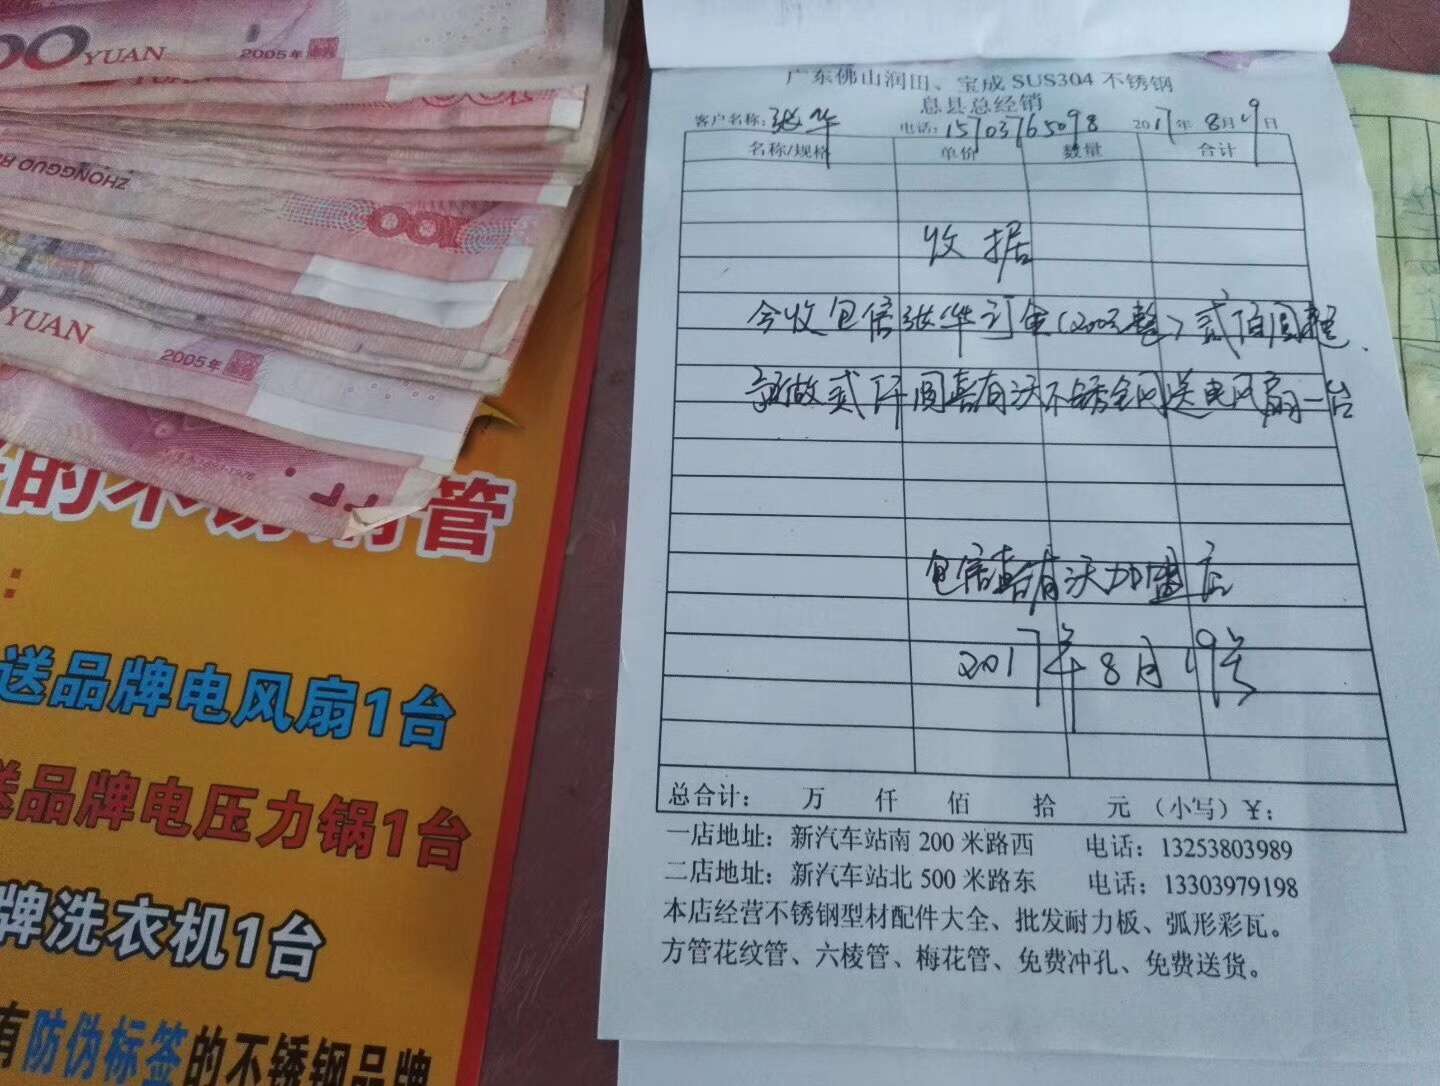 00 YUAN
2005年
ZHONGGUO R
100
YUAN
2005年
的不锈钢管
:
送品牌电风扇1台
送品牌电压力锅1台
牌洗衣机1台
有防伪标签的不锈钢品牌
广东佛山润田、宝成 SUS304 不锈钢
息县总经销
客户名称: 张华 电话: 15703765098 2017年 8月19日
名称/规格 单价 数量 合计
收据
今收包信张华订金(200元整)贰佰圆整.
预做贰仟圆喜有沃不锈钢网送电风扇一台
包信喜有沃加盟店
2017年8月19号
总合计: 万 仟 佰 拾 元 (小写) ¥:
一店地址: 新汽车站南 200 米路西 电话: 13253803989
二店地址: 新汽车站北 500 米路东 电话: 13303979198
本店经营不锈钢型材配件大全、批发耐力板、弧形彩瓦。
方管花纹管、六棱管、梅花管、免费冲孔、免费送货。